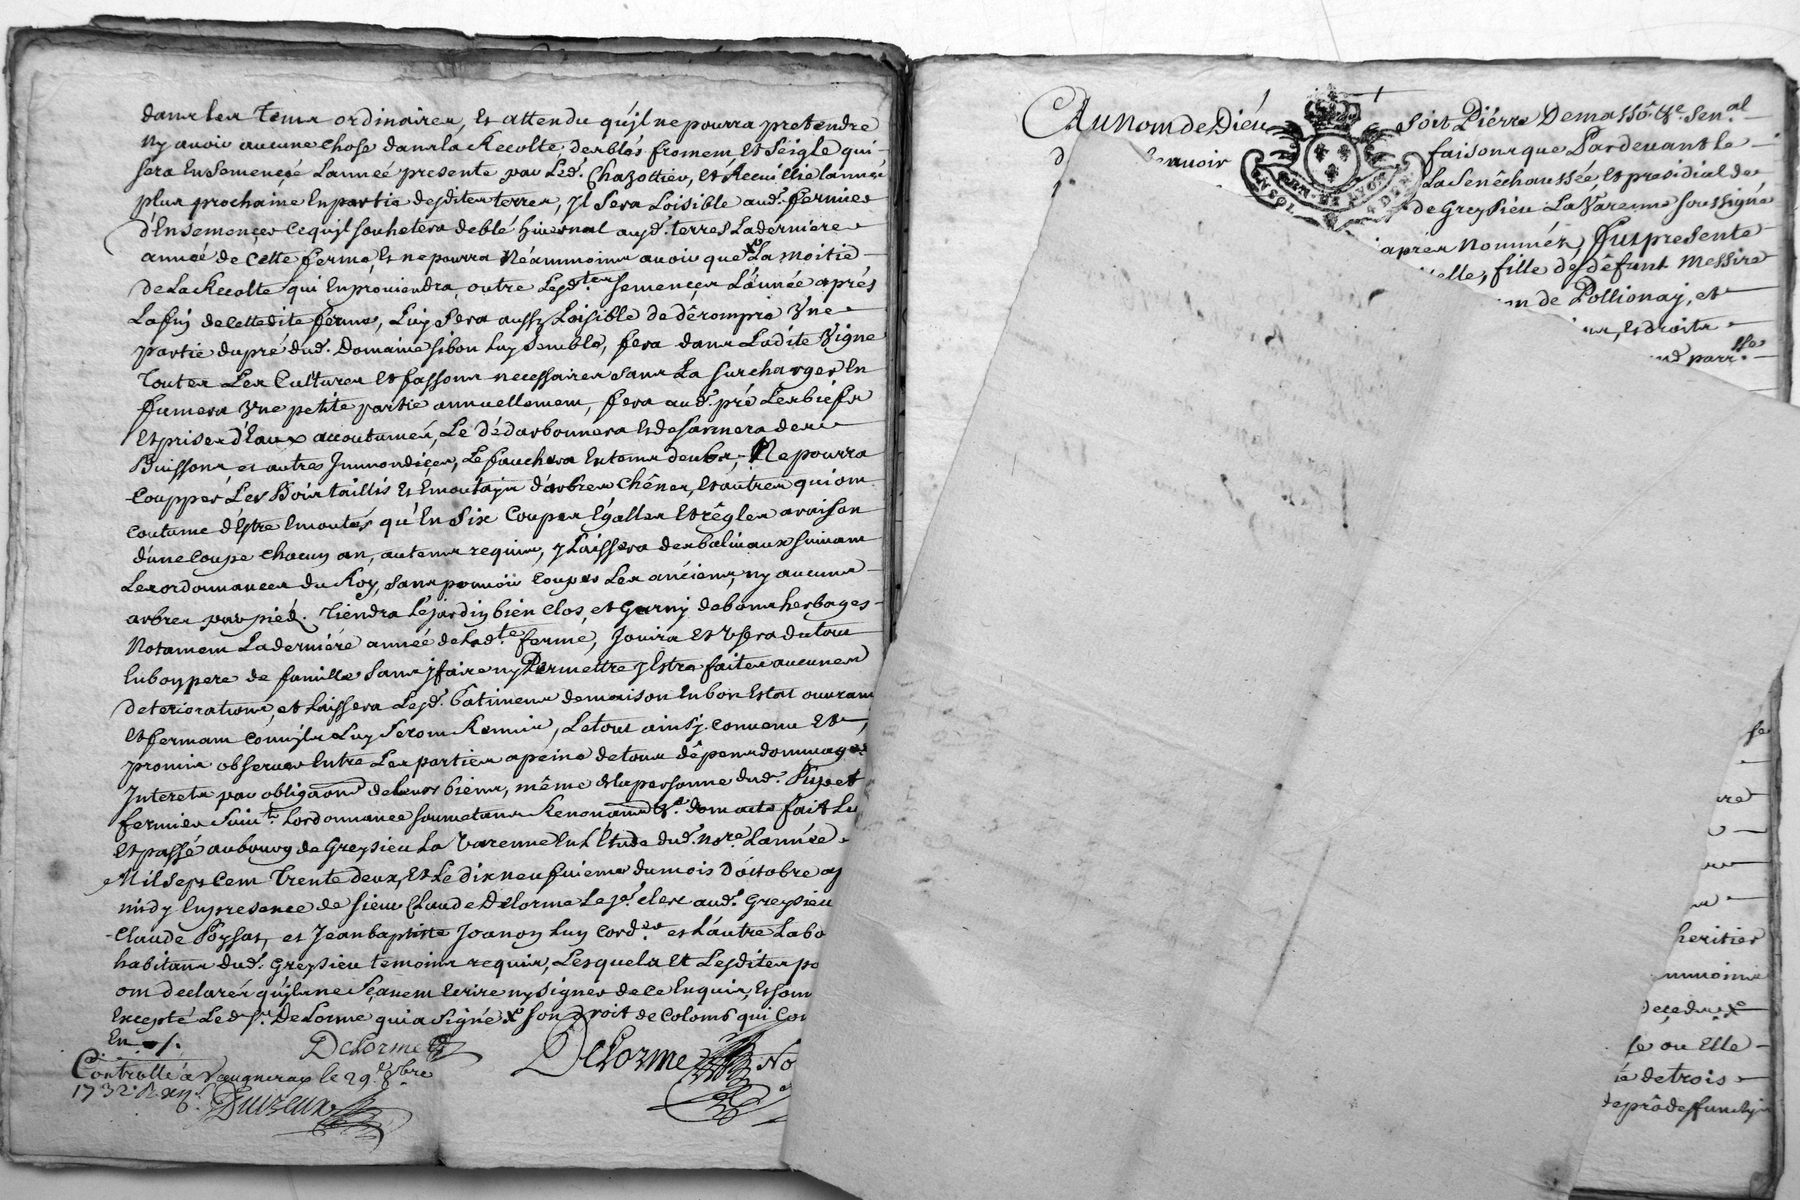 dans les Tems ordinaires, Et attendu qu'jl ne pourra pretendre
Ny avoir aucune Chose dans la Recolte des blés froment et Seigle qui
sera Ensemencée L'année presente par Led. Chazottier, et Recüeillie l'année
plus prochaine En partie desdites terres, jl Sera Loisible aud. fermier
d'Ensemencer ce qu'jl souhetera de blé hivernal auxd. terres La derniere
année de cette ferme, Et ne pourra Néammoins avoir que x La moitié
de La Recolte qui En proviendra, outre Lesd.tes semences L'année aprés
La fin de cette dite ferme, Luy Sera aussy Loisible de dérompre Vne
partie du pré dud. Domaine si bon luy semble, fera dans Ladite Vigne
Toutes Les Cultures et fassons necessaires sans La surcharger En
fumera Vne petite partie annuellement, fera aud. pré Les biefs
Et prises d'Eaux accoutumés, Le dédarbonnera et desarmera des
Buissons et autres Jmmondices, Le fauchera En tems deub, Ne pourra
Coupper Les Bois taillis Et Emoutajn d'arbres Chênes, Et autres qui ont
Coutume d'Estre Emoutés qu'En Six Coupes Egalles Et rêglés a raison
d'une Coupe Chacun an, au tems requis, y Laissera des balivaux suivant
Les ordonnances du Roy, sans pouvoir Couper Les anciens, ny aucuns
arbres par pied. Tiendra Le jardin bien clos, et garny de bons herbages
Notament La derniére année de Lad.te ferme, Jouira Et Vsera du tout
En bon pere de famille sans y faire ny Permettre y Estre faites aucunes
deteriorations, et Laissera Lesd. batimens de maison En bon Estat ouvrant
Et fermant comm'jls Luy Seront Remis, Le tout ainsy convenu Et
promis observer Entre Les parties a peine de tous dêpens dommages
Interets par obligaôns de Leurs biens, même de la personne dud. Pupet
fermier Suiv.t Lordonnance soumetans Renonçâns &.a dont acte fait Lu
Et passé au bourg de Greysieu La Varenne En L'Etude dud. no.re L'année
Mil Sept Cent Trente deux, Et Le dix neufvieme du mois d'octobre ap
midy En presence de sieur Claude Delorme Le je. clerc aud. Greysieu
Claude Poysat, et Jean baptiste Joanon L'un cord.er et L'autre Labo
habitans dud. Greysieu temoins requis, Lesquels Et Lesdites pa
ont declarés qu'jls ne Sçavent Ecrire ny signer de ce Enquis, Et som
Excepté Led. s.r DeLorme qui a signé x son droit de Colomb qui Con
En
DeLorme
DeLorme No
Controllé à Vaugneray le 29.e 8bre
1732 R xij s.
Duizeux
Au Nom de Diéu soit Piérre Demasso &.e Sen.al
Beauvoir faisons que Pardevant Le
La Senêchaussée, Et presidial de
GEN. DE LYON
de Greysieu La Varenne soussigné
aprés Nommés, fut presente
elle, fille de défunt Messire
on de Pollionay, et
Et droits
ud. parr.sse
se
re
heritier
mmoins
decedue x
se ou Elle
é de trois
de prôdesfunctis